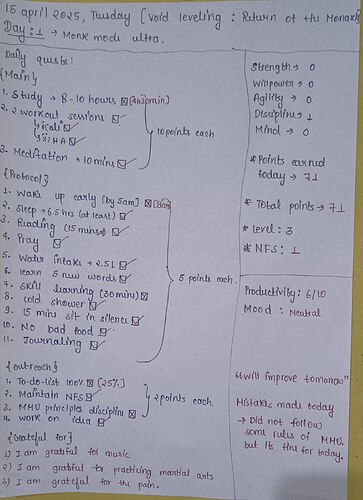 15 april 2025, Tuesday [void leveling : Return of the Monarch]
Day : 1 → Monk mode ultra.
Daily quests:
{Main}
1. Study → 8-10 hours ☒ [4h30min]
2. 2 workout sessions ☑
↳ cali ☑
↳ MMA ☑
3. Meditation → 10 mins ☑
10 points each
{Protocol}
1. Wake up early [by 5am] ☒ [8am]
2. Sleep → 6.5 hrs (at least) ☑
3. Reading (15 mins) ☑
4. Pray ☑
5. Water intake → 2.5l ☑
6. learn 5 new words ☑
7. Skill learning (30 mins) ☒
8. cold shower ☑
9. 15 mins sit in silence ☑
10. No bad food ☑
11. Journaling ☑
5 points each
{outreach}
1. To-do-list 100% ☒ [25%]
2. Maintain NFS ☑
3. MMU principles discipline ☒
4. work on idea ☑
2 points each
{Grateful for}
1) I am grateful for music
2) I am grateful for practicing martial arts
3) I am grateful for the pain.
Strength → 0
Willpower → 0
Agility → 0
Discipline → 1
Mind → 0
* Points earned
today → 71
* Total points → 71
* level : 3
* NFS : 1
Productivity : 6/10
Mood : Neutral.
"will improve tomorrow"
Mistakes made today
→ Did not follow
some rules of MMU.
but its fine for today.